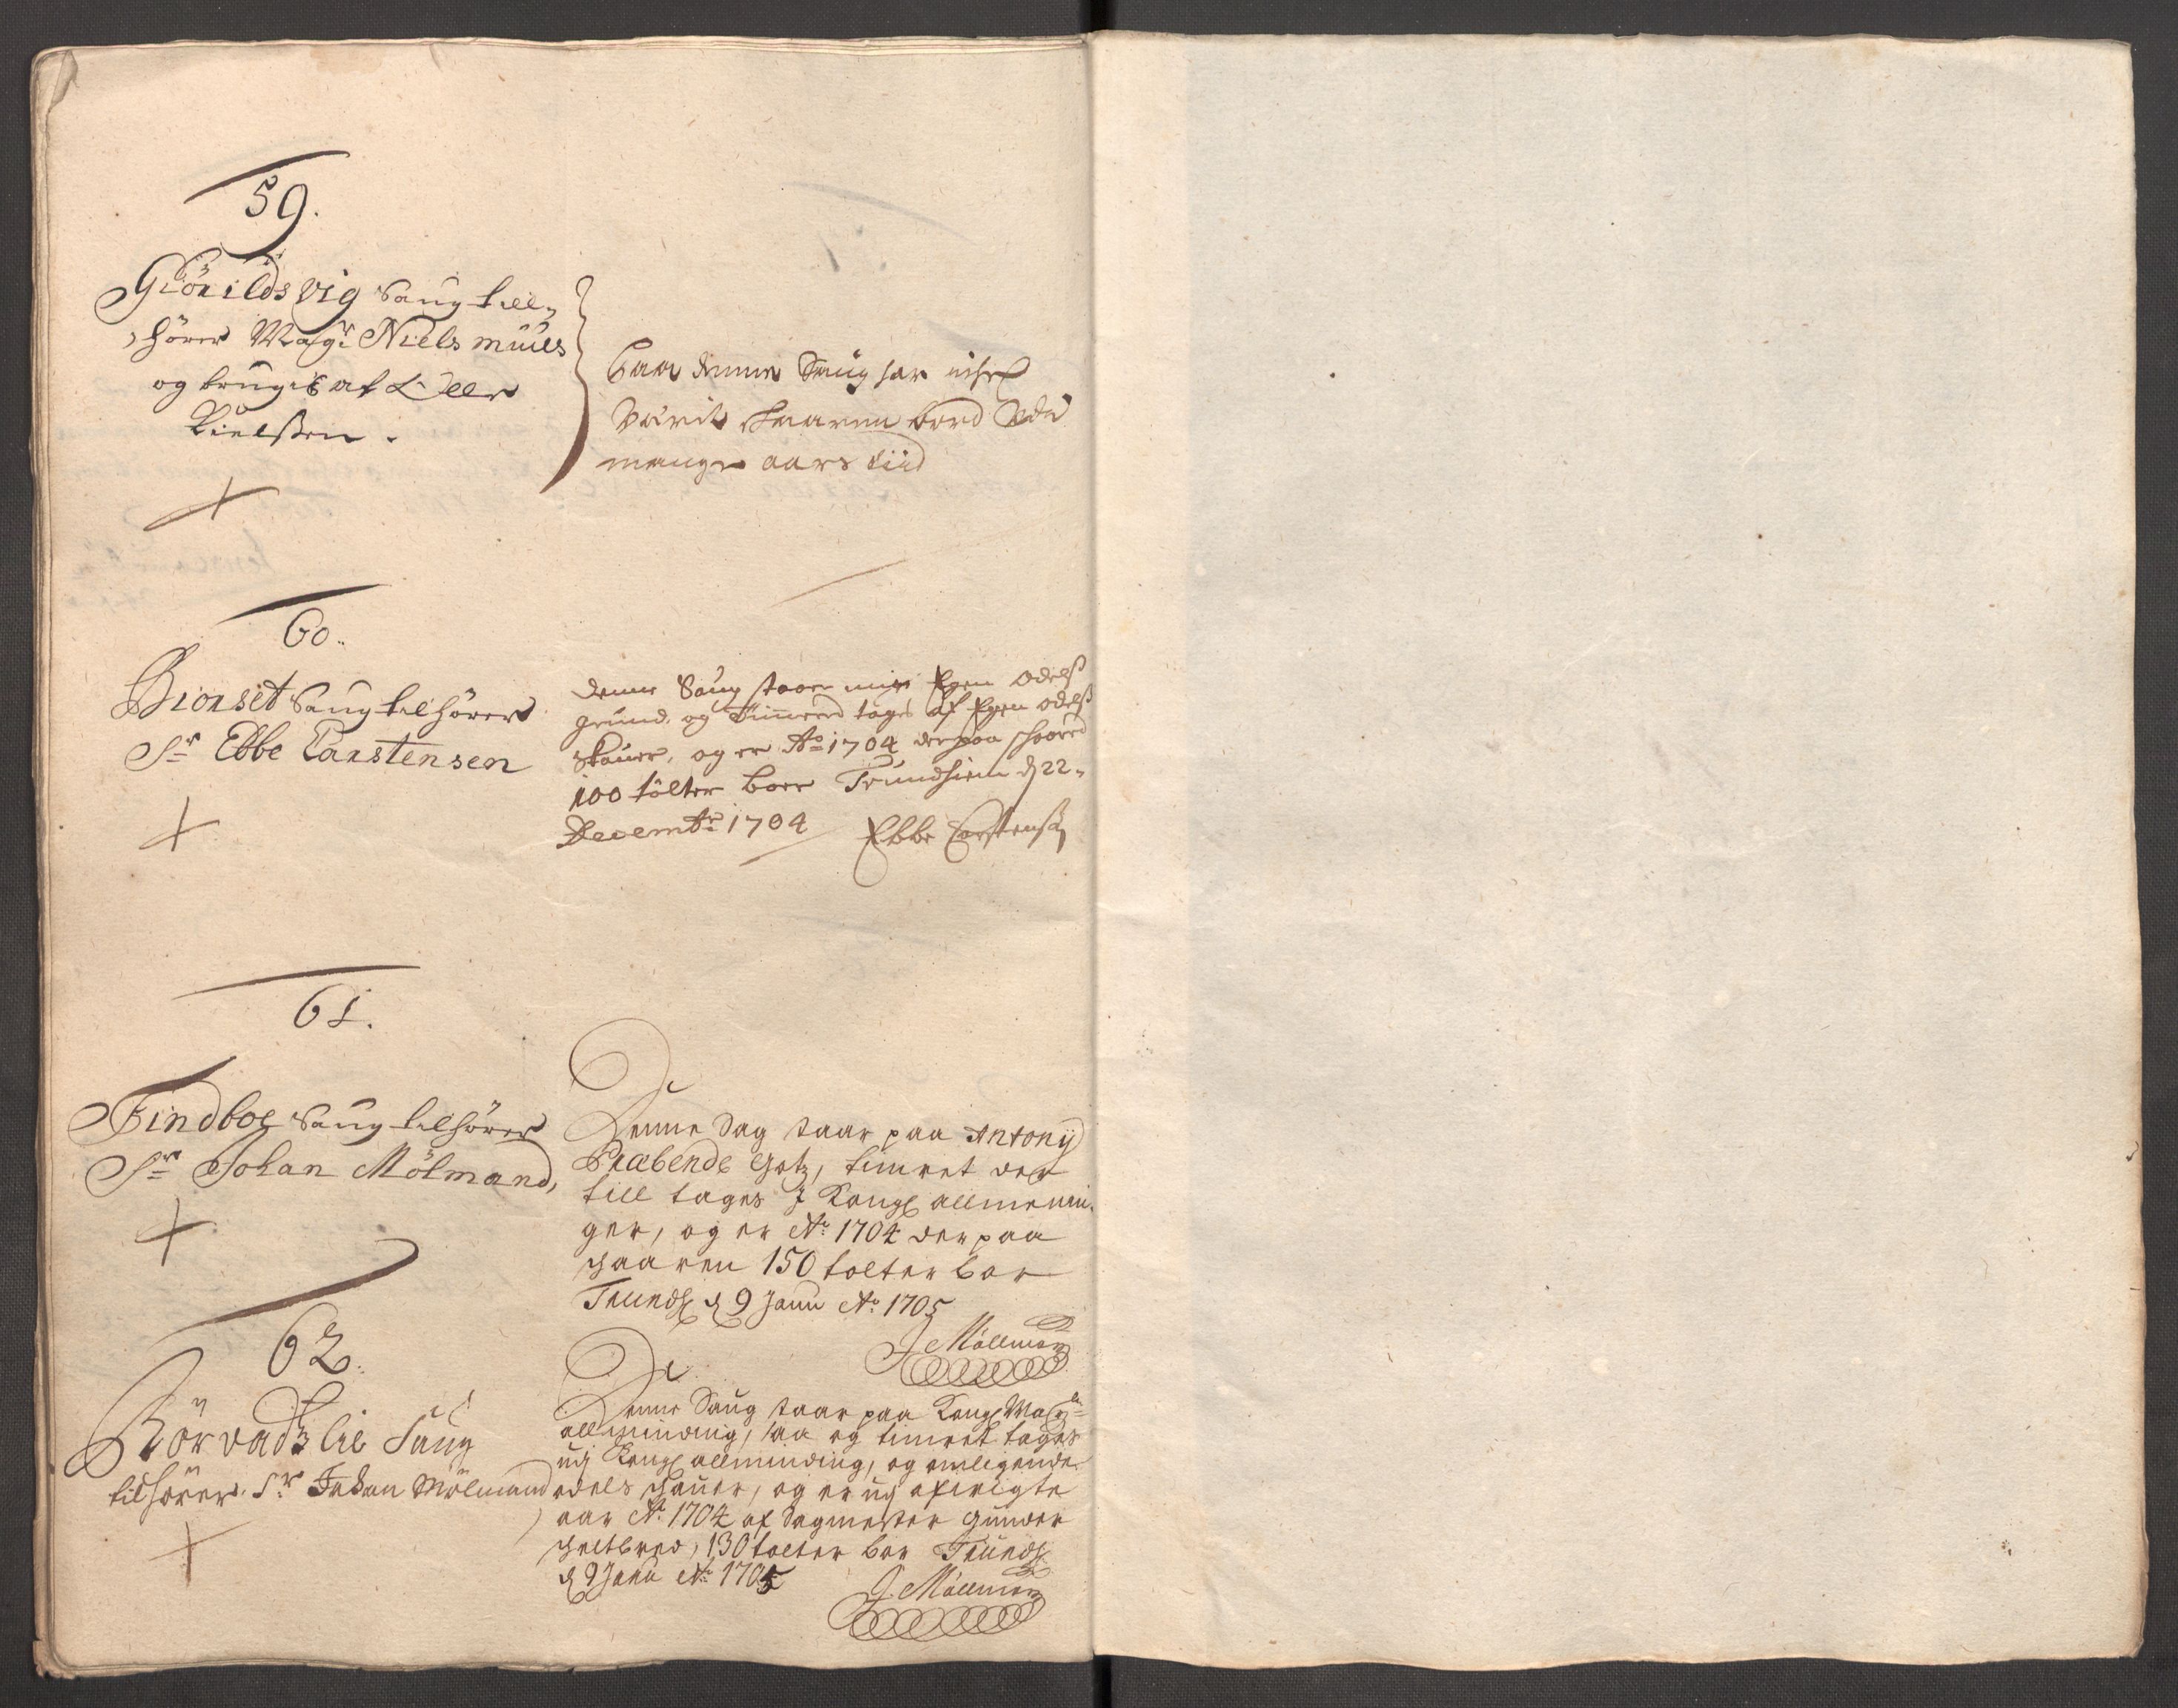 59.
Giönildsvig Saug till,
hörer Mag:r Niels muus
og brugis af
Nielsen.
Paa denne Saug har
værit skaaren bord
mange aars tiid
60.
Bionset Saug tilhörer
Sr Ebbe Carstensen
denne Saug staar mijn Egen odelss
grund, og Tømmered tages af Egen odelss
skauer, og er Ao 1704 derpaa schaared
100 tölter boer Trundhiem d 22.
Decembr 1704 Ebbe Carstenss
61.
Findboe Saug tilhörer
Sr Johan Mölmand,
Denne Sag staar paa Antony
Præbende Gotz, timret der
till tages J Kongl allmenni
ger, og er Ao 1704 der paa
schaaren 150 tolter bor
Trundh d 9 Janu Ao 1705
J Möllman
62.
Rörvadzlie Saug
tilhörer Sr Johan Mölmand
Denne Saug staar paa Kongl May
allminding, saa og timret tages
udj Kongl allminding, og omligende
odels schauer, og er udj afvigte
aar Ao 1704 af Sagmester Gunder
, 130 tolter bor Trundh
d 9 Janu Ao 1705
J. Möllman